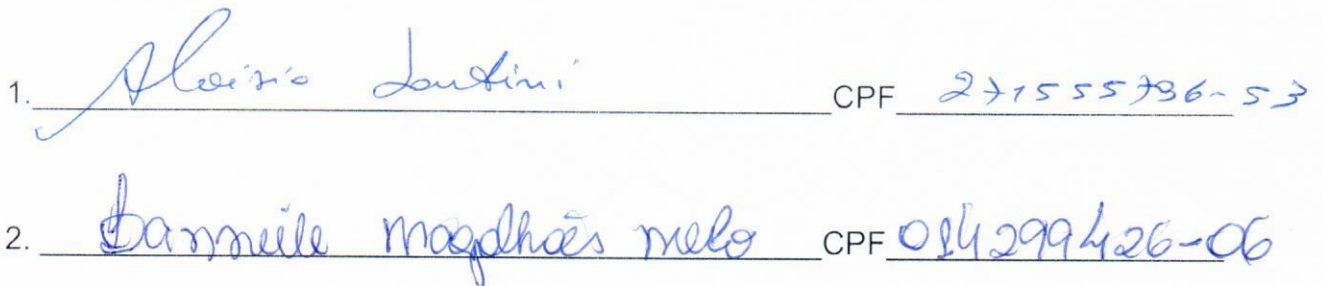 1. Aloisio Santini CPF 271555796-53
2. Dannielle Magalhães Melo CPF 014299426-06